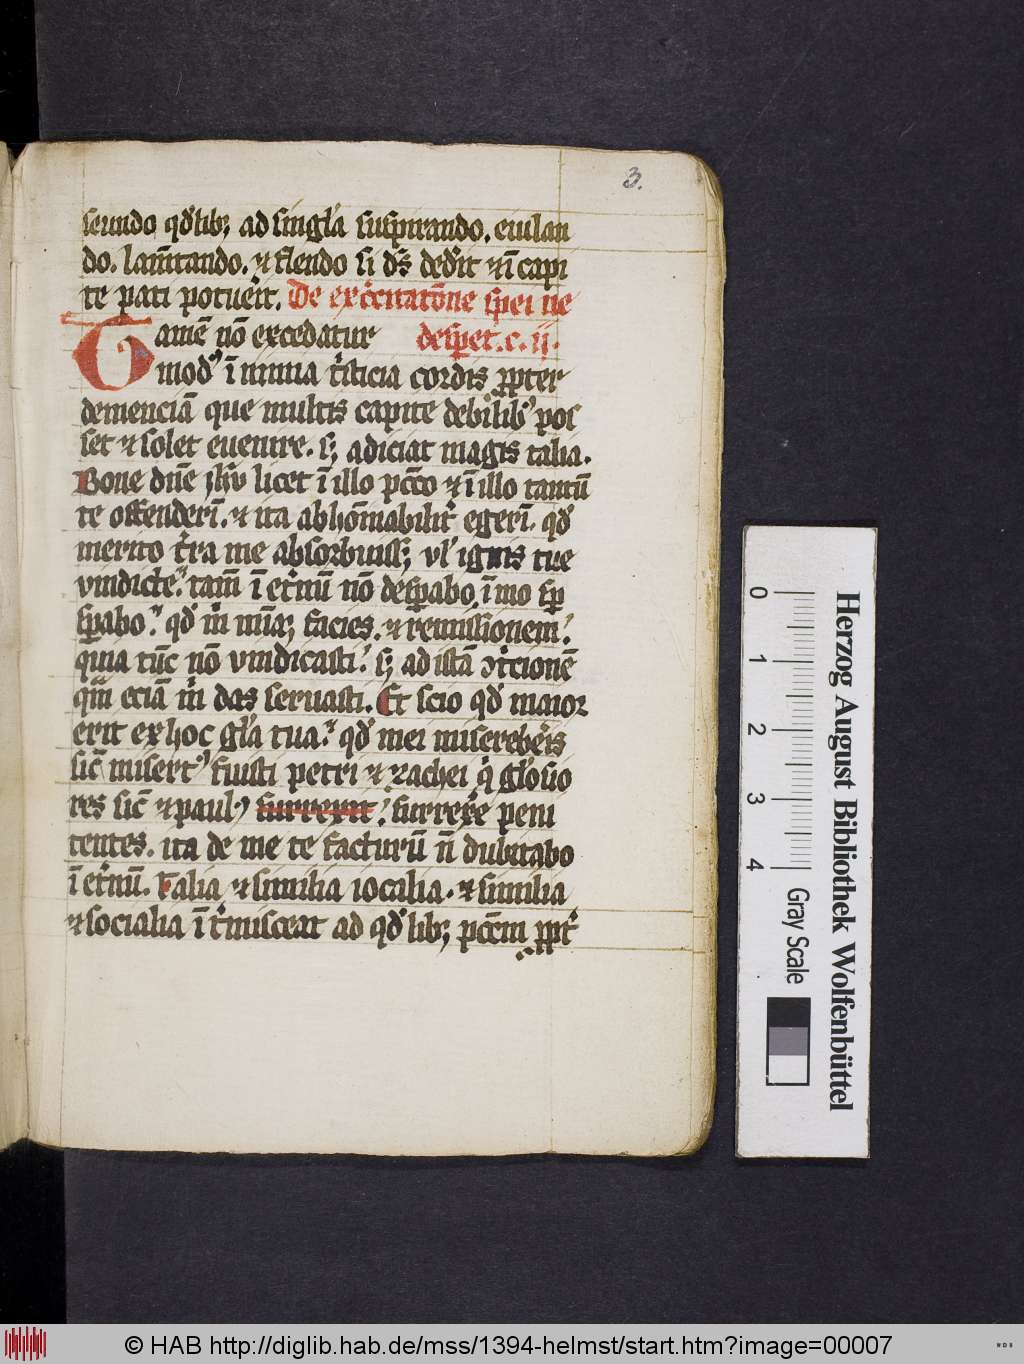 3.
seundo qd'libꝫ ad singl'a suspirando. eiulan
do. lam̄tando. ⁊ flendo si d̄s ded'it ⁊ ī capi
te pati potuerit. De exc̄itatōne spei ne
Tamē nō excedatur desꝑet. c. ij.
modꝰ ī nimia t'sticia cordis ꝓpter
demenciā que multis capite debilibꝰ pos
set ⁊ solet euenire. sꝫ adiciat magis talia.
Bone dn̄e jhū licet ī illo pc̄co ⁊ ī illo tantū
te offenderī. ⁊ ita abhōīabilit' egerī. qd'
merito t'ra me absorbuissꝫ vl' ignis tue
vindicte. tam̄ ī et'nū nō desꝑabo. īmo sꝑ
sꝑabo. qd' m̄ mīaꝫ facies. ⁊ remissionem.
quia tūc nō vindicasti. sꝫ ad istā ↄt'cionē
qm̄ eciā m̄ das seruasti. Et scio qd' maior
erit ex hoc gl'a tua. qd' mei misereb'is
sic̄ misertꝰ fuisti petri ⁊ zachei q' gl'osio
res sic̄ ⁊ paulꝰ surrexit surrex'e peni
tentes. ita de me te facturū n̄ dubitabo
ī et'nū. Talia ⁊ similia iocalia. ⁊ similia
⁊ socialia ī t'misceat ad qd'libꝫ pc̄cm̄ ꝓpt'
Herzog August Bibliothek Wolfenbüttel
0 1 2 3 4
Gray Scale
© HAB http://diglib.hab.de/mss/1394-helmst/start.htm?image=00007